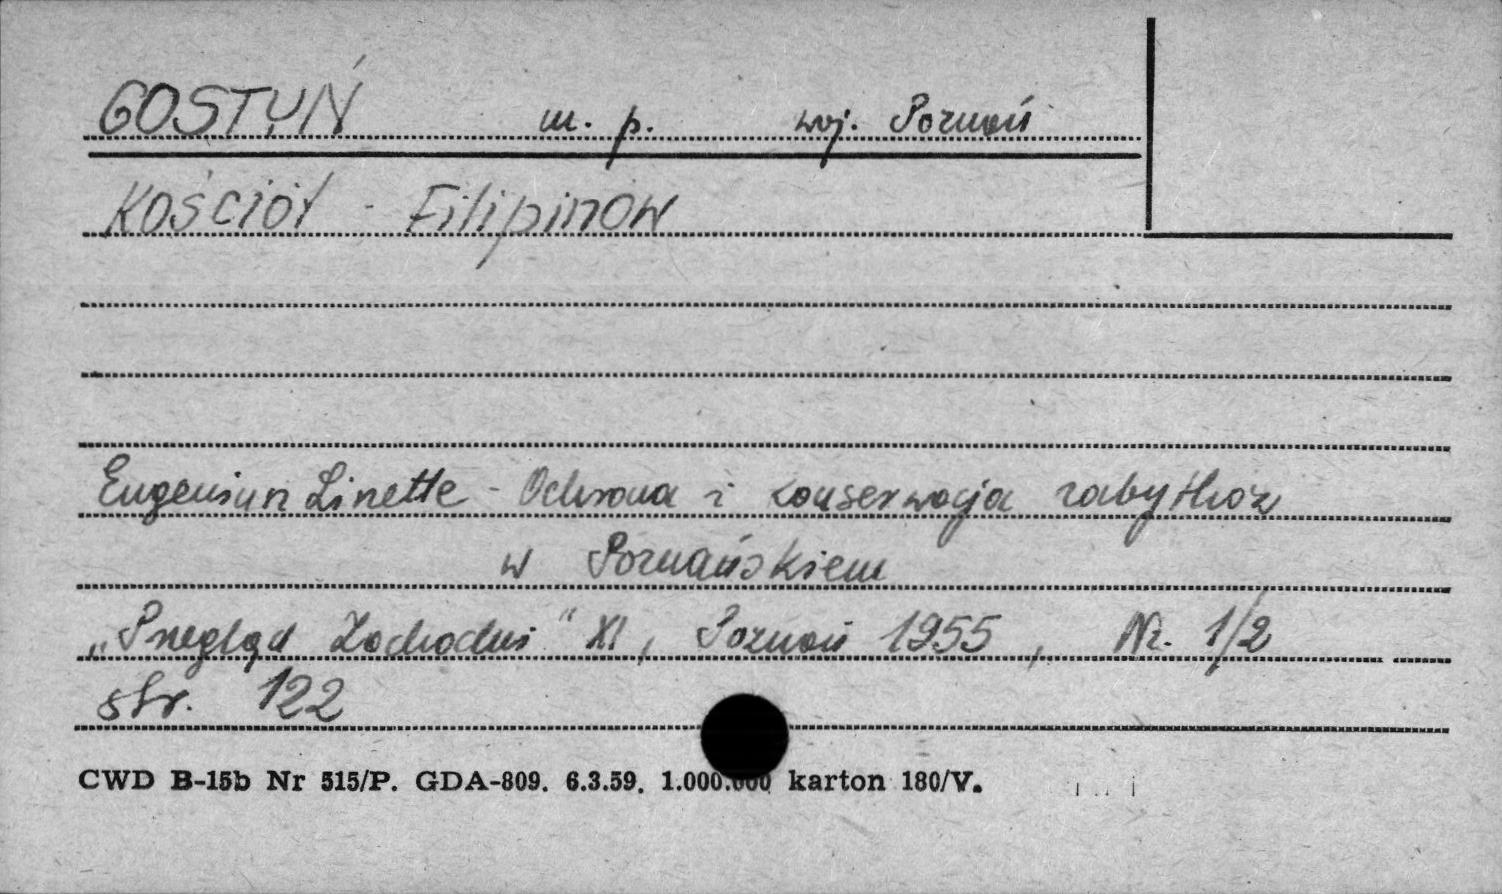 GOSTYŃ m. p. woj. Poznań
Kościół - Filipinów
Eugeniusz Linette - Ochrona i konserwacja zabytków
w Poznańskiem
„Przegląd Zachodni" XI, Poznań 1955, Nr. 1/2
str. 122
CWD B-15b Nr 515/P. GDA-809. 6.3.59. 1.000.000 karton 180/V.